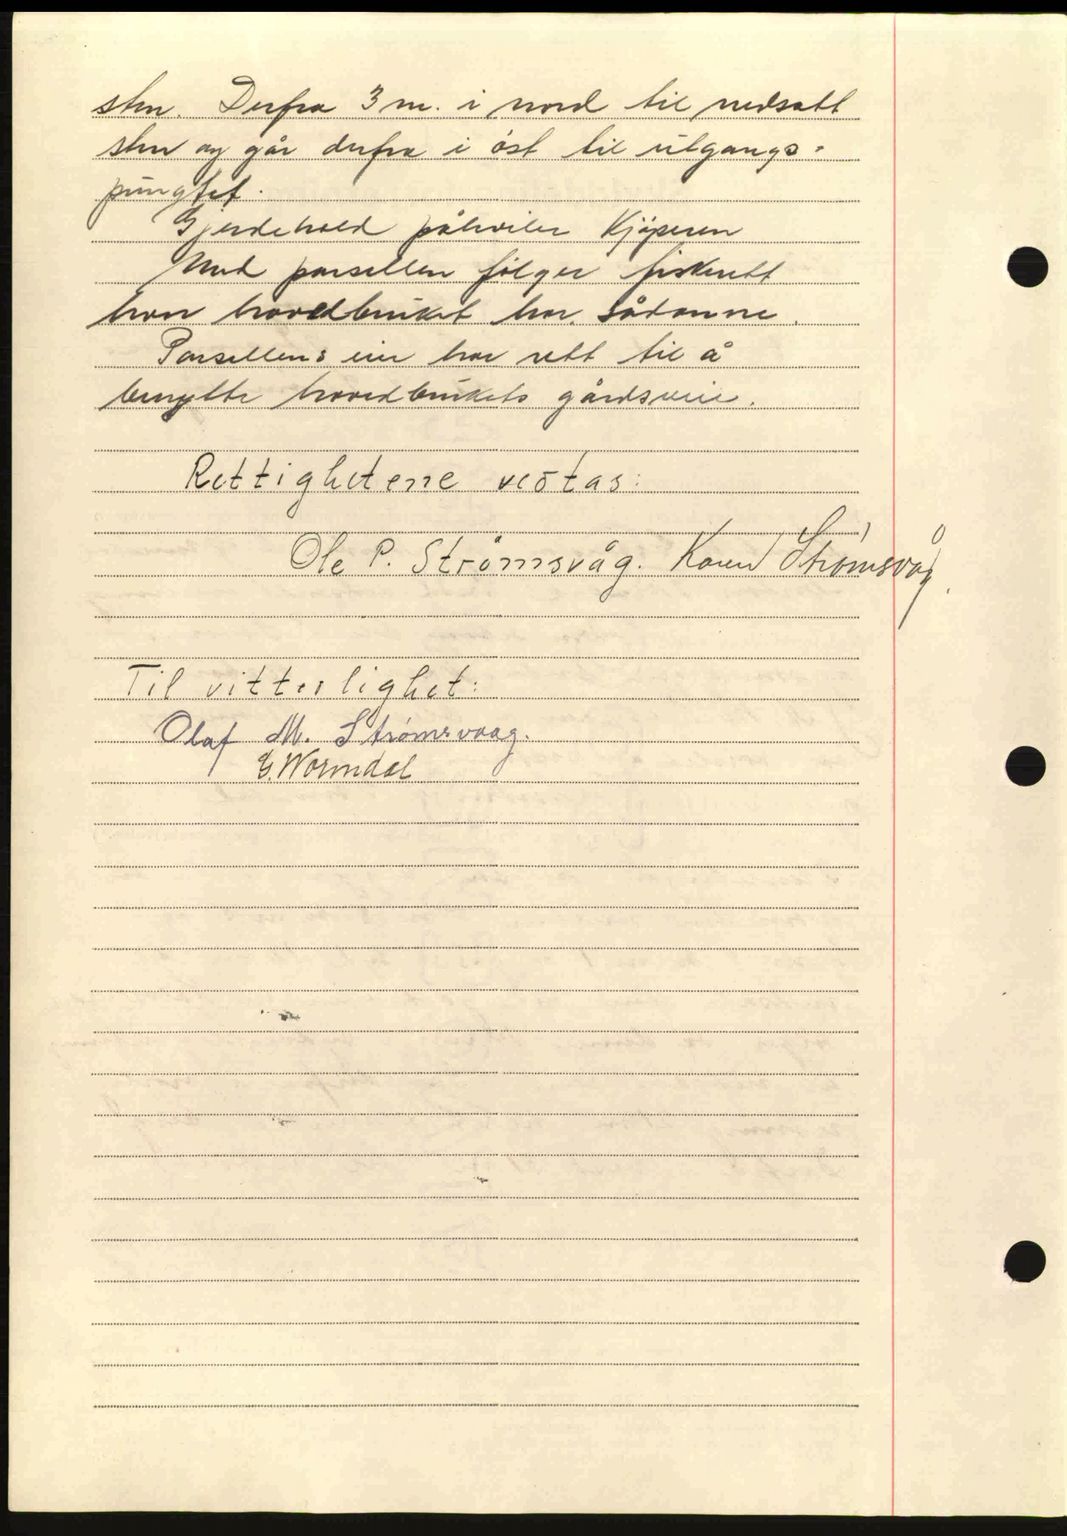 sten. Derfra 3 m. i nord til nedsatt
sten og går derfra i øst til utgangs-
pungtet.
Gjerdehold påhviler Kjøperen
Med parsellen følger fiskerett
hvor hovedbruket har sådanne.
Parsellens eier har rett til å
benytte hovedbrukets gårdsveie.
Rettighetene vedtas:
Ole P. Strømsvåg. Karen Strømsvåg.
Til vitterlighet:
Olaf M. Strømsvaag.
E. Wormdal